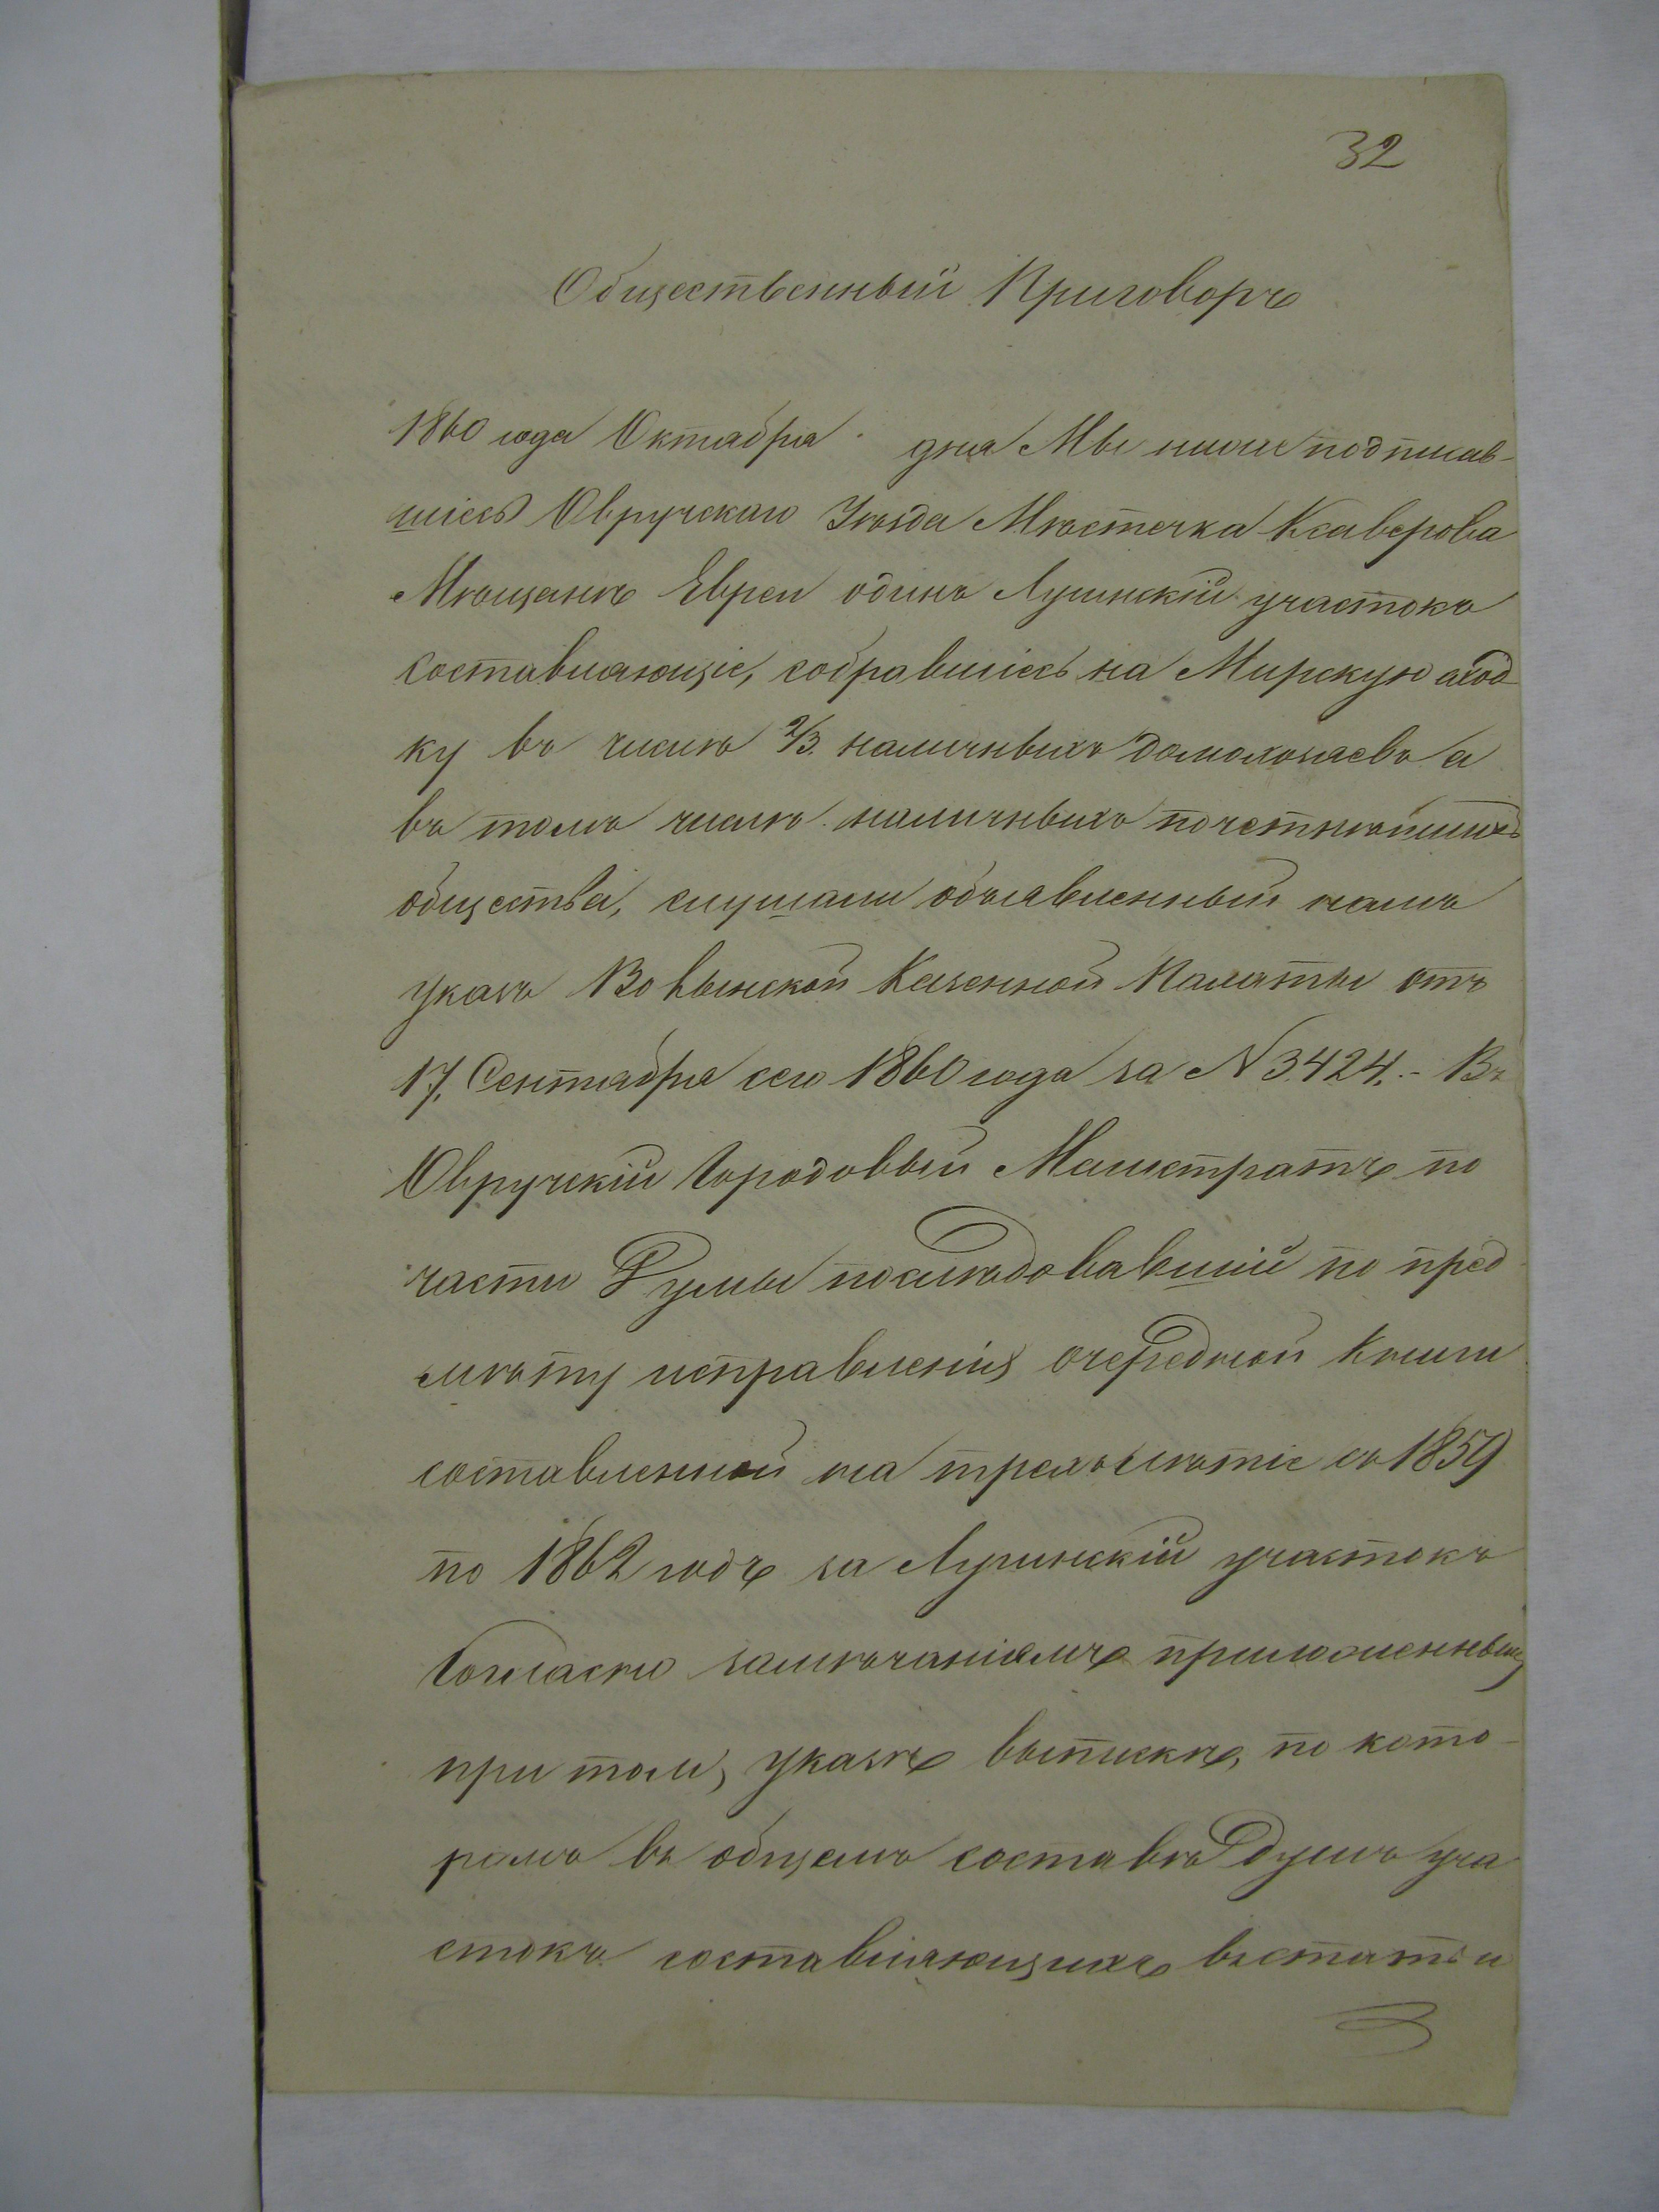 32
Общественный Приговоръ
1860 года Октября дня Мы ниже подписав-
шіесь Овручскаго Уѣзда Мѣстечка Ксаверова
Мѣщанъ Евреи одинъ Лугинскій участокъ
составляющіе, собравшіесь на Мирскую сход-
ку въ числѣ 2/3. наличныхъ домохозяевъ а
въ томъ числѣ наличныхъ почетнѣйшихъ
общества, слушали объявленный намъ
указъ Волынской Казенной Палаты отъ
17. Сентября сего 1860 года за N 3424. - Въ
Овручскій Городовый Магистратъ по
части Думы послѣдовавшій по пред
мѣту исправленія очередной Книги
составленной на трехълѣтіе съ 1859
по 1862 годъ за Лугинскій участокъ
Согласно замѣчаніямъ приложеннымъ
при томъ указѣ выпискѣ, по кото-
рымъ въ общемъ составѣ думъ уча
стокъ составляющихъ въ статьи